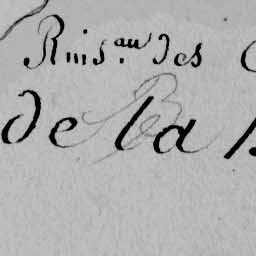 Ruis.au des
de la